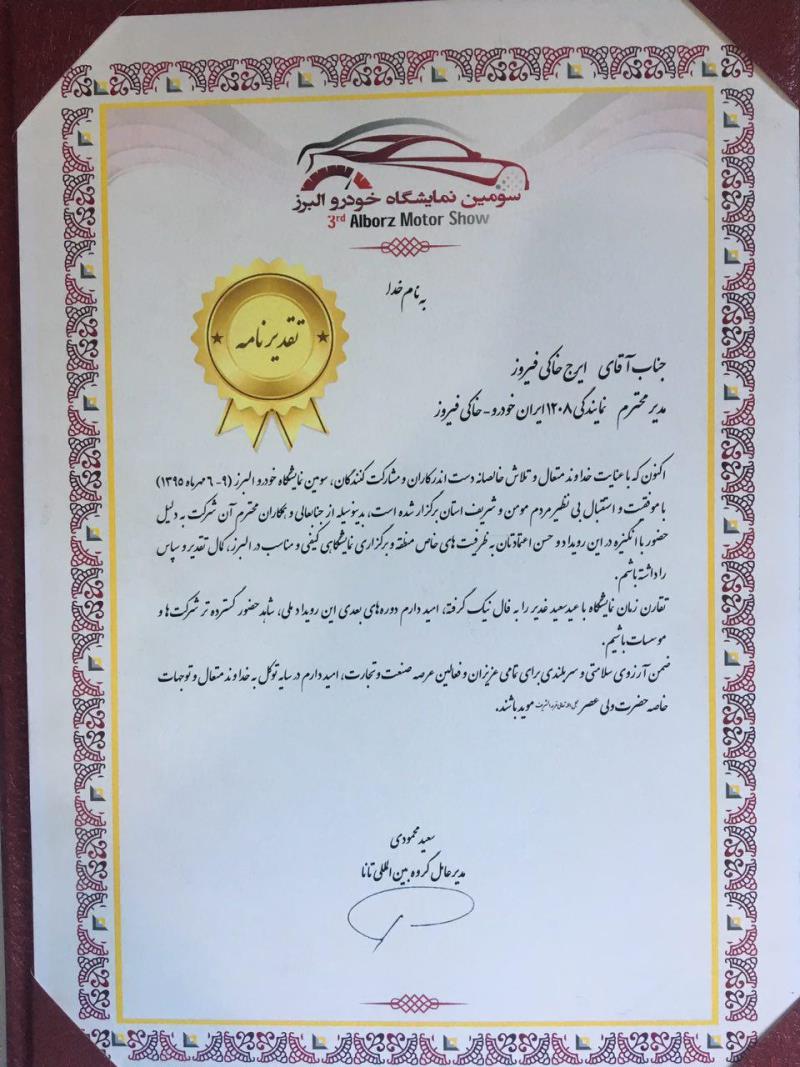 سومین نمایشگاه خودرو البرز
3rd Alborz Motor Show
به نام خدا
تقدیر نامه
جناب آقای ایرج خاکی فیروز
مدیر محترم نمایندگی ۱۲۰۸ ایران خودرو - خاکی فیروز
اکنون که با عنایت خداوند متعال و تلاش خالصانه دست اندرکاران و مشارکت کنندگان، سومین نمایشگاه خودرو البرز (۹- ۶ مهرماه ۱۳۹۵)
با موفقیت و استقبال بی نظیر مردم مومن و شریف استان برگزار شده است، بدینوسیله از جنابعالی و همکاران محترم آن شرکت به دلیل
حضور با انگیزه در این رویداد و حسن اعتمادتان به ظرفیت های خاص منطقه و برگزاری نمایشگاهی کیفی و مناسب در البرز، کمال تقدیر و سپاس
را داشته باشم.
تقارن زمان نمایشگاه با عید سعید غدیر را به فال نیک گرفته، امید دارم دوره های بعدی این رویداد ملی، شاهد حضور گسترده تر شرکت ها و
موسسات باشیم.
ضمن آرزوی سلامتی و سربلندی برای تمامی عزیزان و فعالین عرصه صنعت و تجارت، امید دارم در سایه توکل به خداوند متعال و توجهات
خاصه حضرت ولی عصر عجل الله تعالی فرجه الشریف موید باشند.
سعید محمودی
مدیر عامل گروه بین المللی تانا